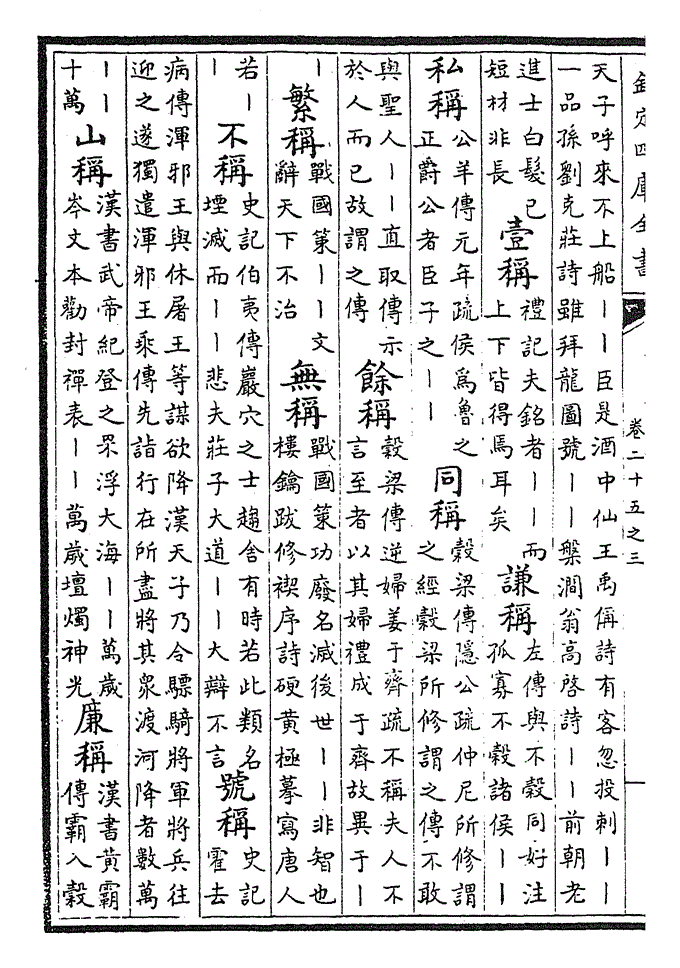 欽定四庫全書 卷二十五之三
天子呼來不上船——臣是酒中仙王禹偁詩有客忽投刺——
一品孫劉克莊詩雖拜龍圖號——槃澗翁高啓詩——前朝老
進士白髮已短材非長 壹稱 禮記夫銘者——而上下皆得焉耳矣 謙稱 左傳與不穀同好注孤寡不穀諸侯——
私稱 公羊傳元年疏侯為魯之正爵公者臣子之—— 同稱 穀梁傳隱公疏仲尼所修謂之經穀梁所修謂之傳不敢
與聖人——直取傳示於人而已故謂之傳 餘稱 穀梁傳逆婦姜于齊疏不稱夫人不言至者以其婦禮成于齊故異于—
— 繁稱 戰國策——文辭天下不治 無稱 戰國策功廢名滅後世——非智也樓鑰跋修禊序詩硬黄極摹寫唐人
若—— 不稱 史記伯夷傳巖穴之士趨舍有時若此類名堙滅而——悲夫莊子大道——大辯不言 號稱 史記霍去
病傳渾邪王與休屠王等謀欲降漢天子乃令驃騎將軍將兵往
迎之遂獨遣渾邪王乘傳先詣行在所盡將其衆渡河降者數萬
——十萬 山稱 漢書武帝紀登之罘浮大海——萬歲岑文本勸封禪表——萬歲壇燭神光 廉稱 漢書黄霸傳霸入穀